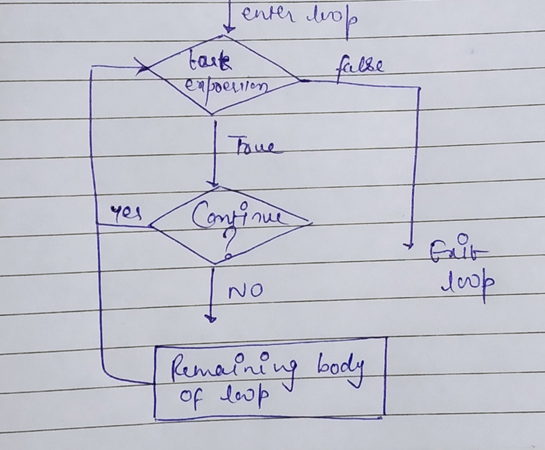 enter loop
test
expression
false
True
yes
Continue
?
Exit
loop
NO
Remaining body
of loop